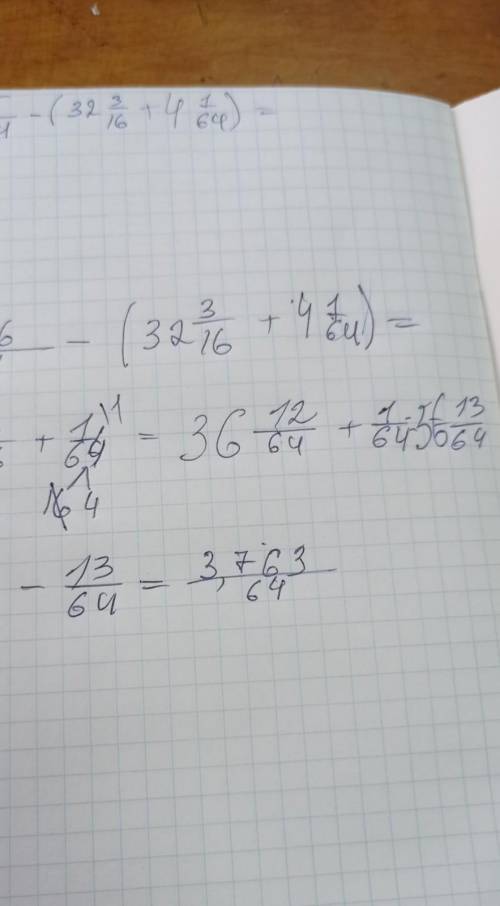 - (32 3/16 + 4 1/64) =
- (32 3/16 + 4 1/64) =
+ 1/64 \1 = 36 12/64 + 1/64 = 36 13/64
16 4
- 13/64 = 3763/64